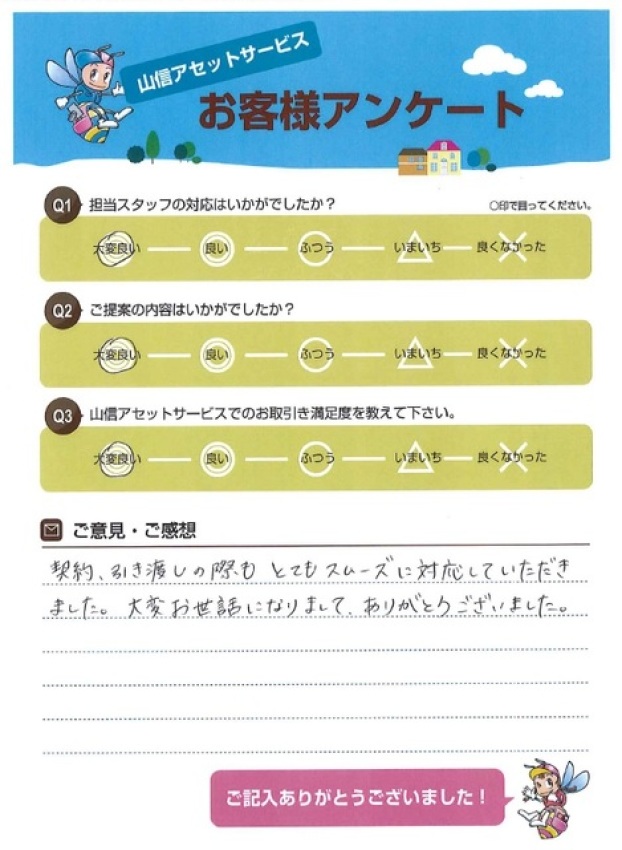 山信アセットサービス
お客様アンケート
Q1 担当スタッフの対応はいかがでしたか？ ○印で囲ってください。
大変良い 良い ふつう いまいち 良くなかった
Q2 ご提案の内容はいかがでしたか？
大変良い 良い ふつう いまいち 良くなかった
Q3 山信アセットサービスでのお取引き満足度を教えて下さい。
大変良い 良い ふつう いまいち 良くなかった
ご意見・ご感想
契約、引き渡しの際も とてもスムーズに対応していただき
ました。大変お世話になりまして、ありがとうございました。
ご記入ありがとうございました！